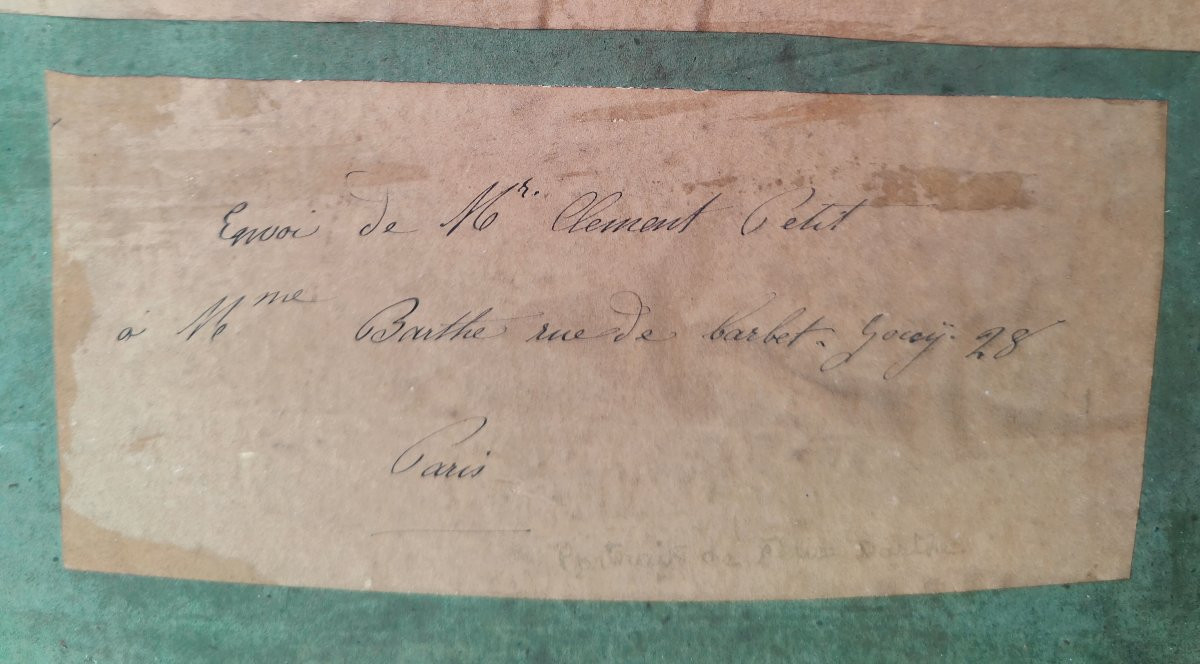 Envoi de Mr. Clement Petit
à Mme Barthe rue de barbet-Jouÿ. 28
Paris
Portrait de Mme Barthe